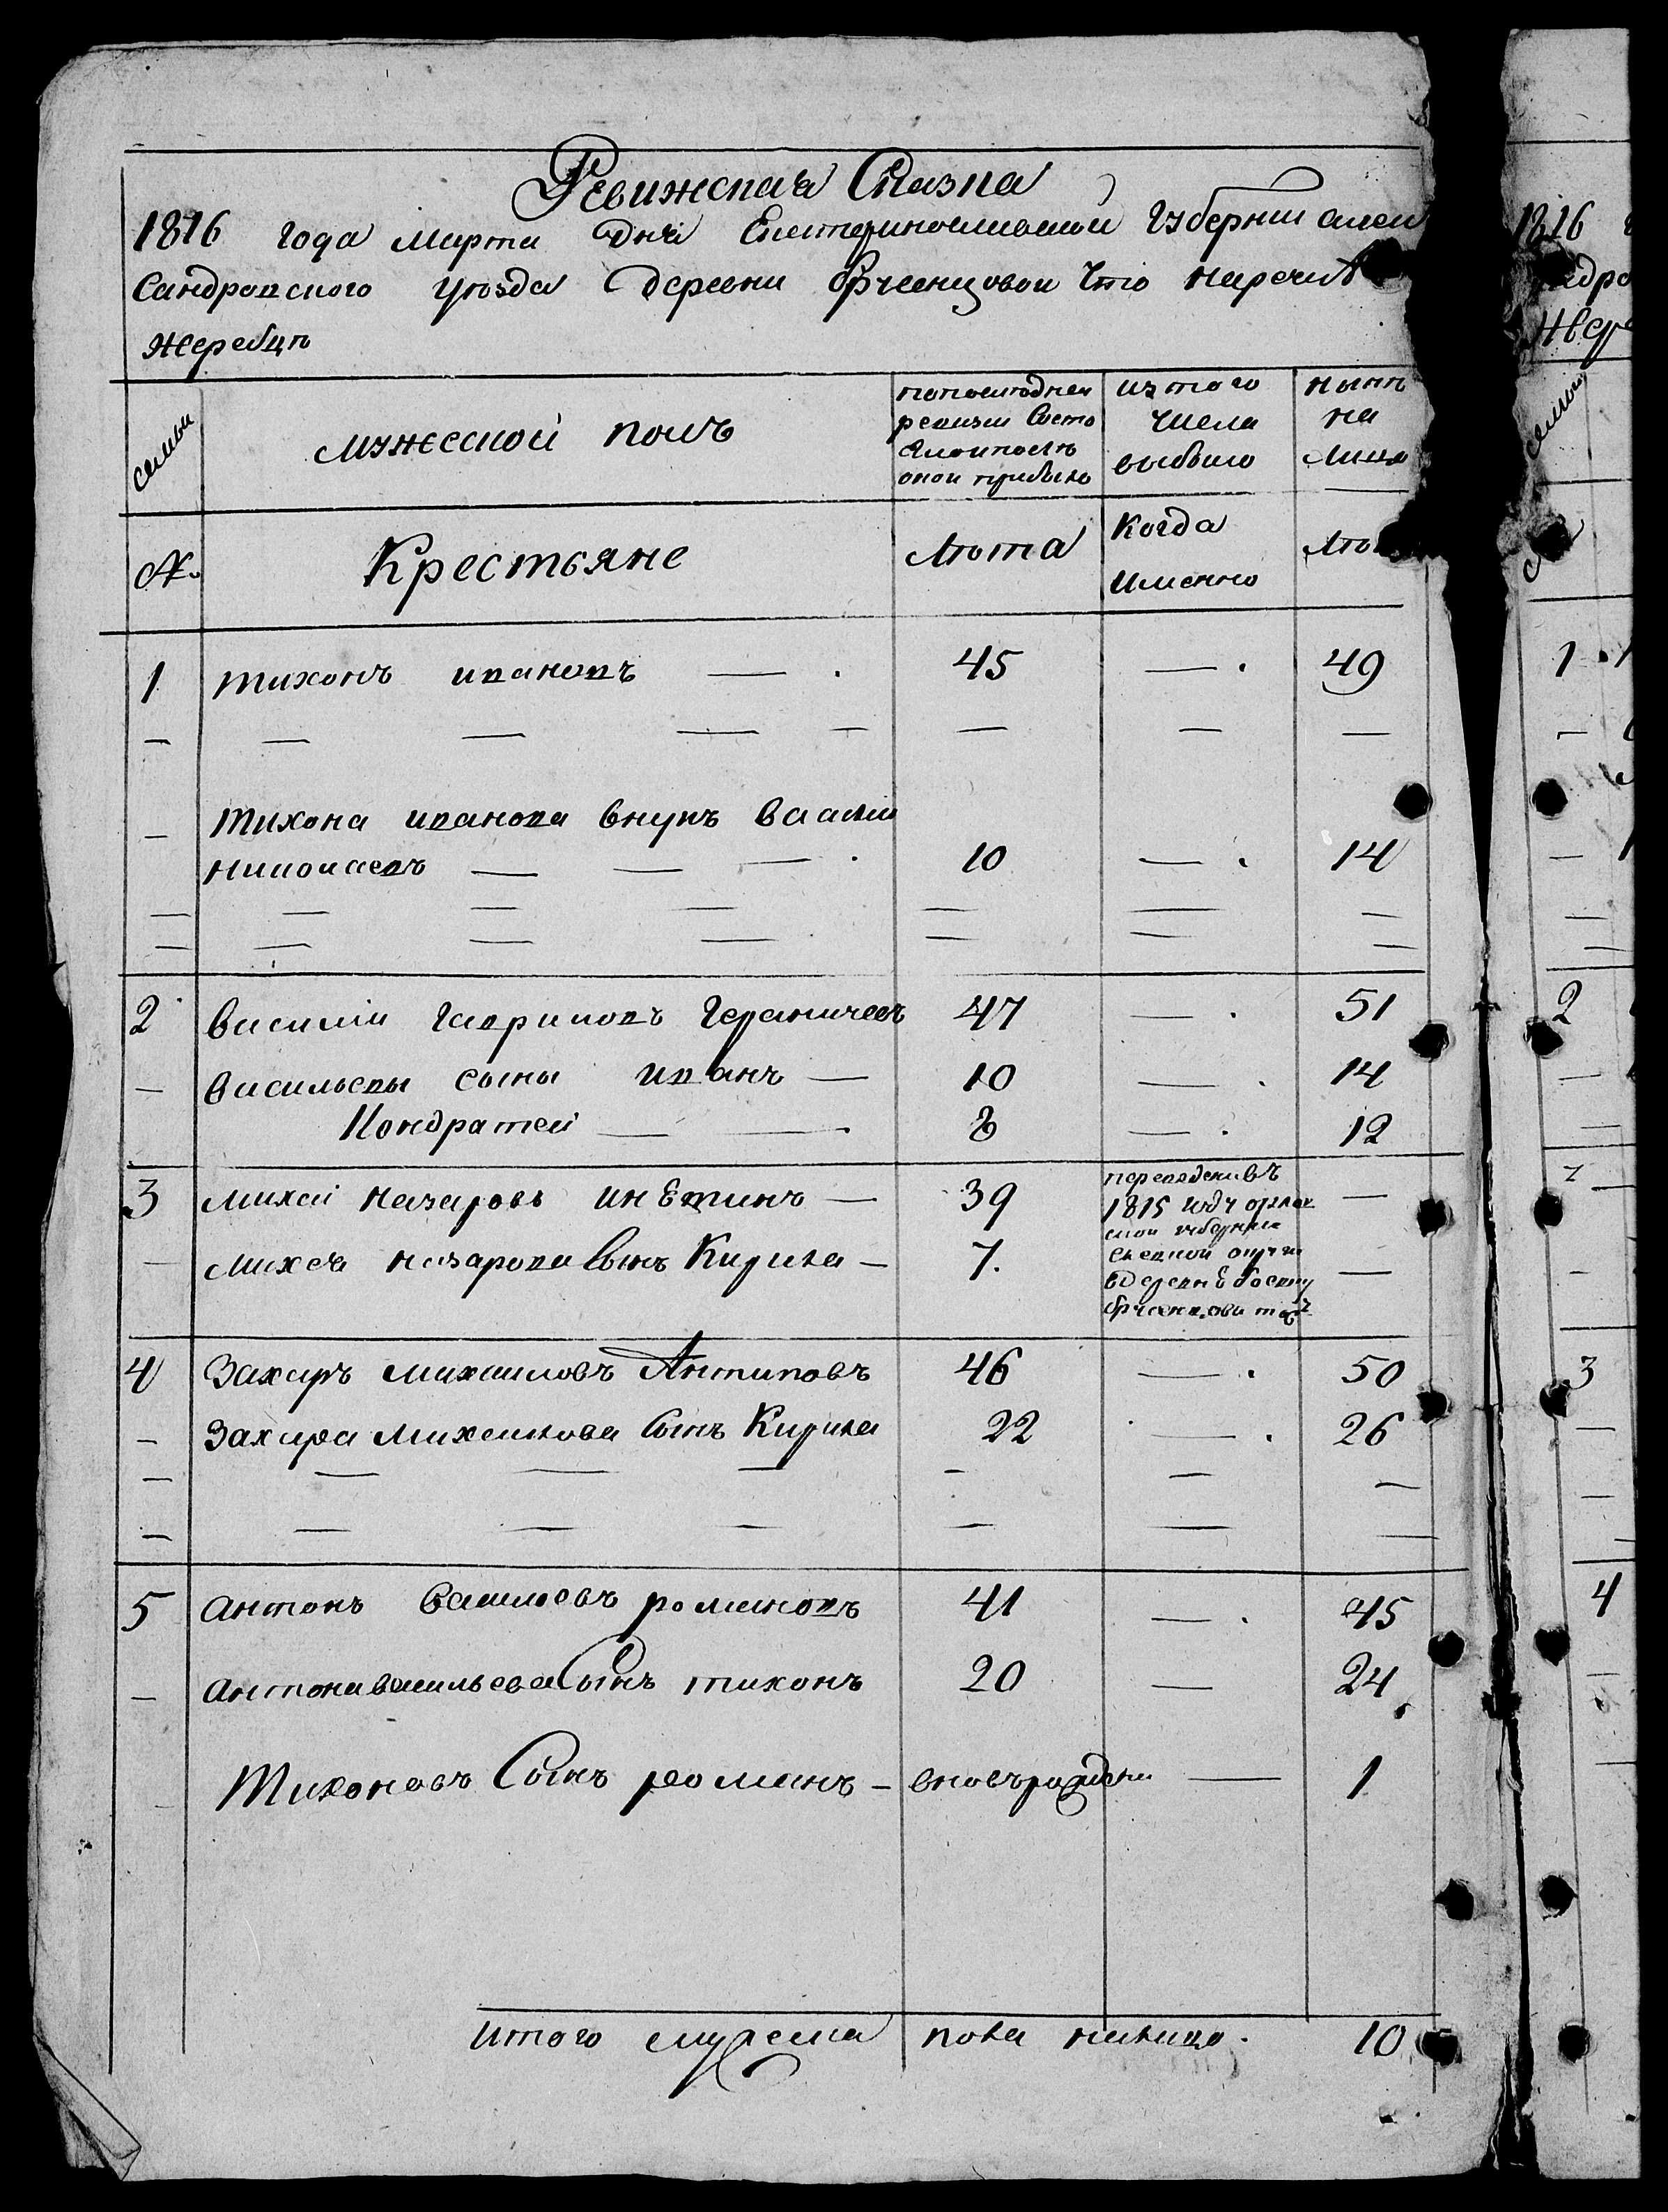 Ревижская Сказка
1816 года Марта дня Екатеринославской Губернии Алек
сандровского уезда деревни Фрченцовой Что на речки
жеребцѣ
семьи
мужеской полъ
попоследней
ревизии Состо
яло ипослѣ
оной прибыло
изтого
числа
выбыло
нынѣ
на
Лицо
№
Крестьяне
Лѣта
Когда
Имянно
Лѣ
1 тихонъ ивановъ — . 45 — . 49
— Тихона иванова внукъ васили
николаевъ — — — . 10 — . 14
2 василий гавриловъ 47 — . 51
— васильевы сыны иванъ — 10 — . 14
Кондратей — — . 8 — . 12
3 михей назаровъ — 39 —
— михея назарова Сынъ Кирила — 7. —
переведенивъ
1815 году орлов
ской губернии
4 Захаръ михаиловъ Антиповъ 46 — . 50
— Захара михаилова Сынъ Кирила 22 — . 26
5 антонъ васильевъ романовъ 41 — . 45
— антона васильева Сынъ тихонъ 20 — 24
Тихоновъ Сынъ романъ — вновьрожденъ — 1
Итого мужеска пола налицо. 10
1816
дро
Жер
семьи
1
2
3
4